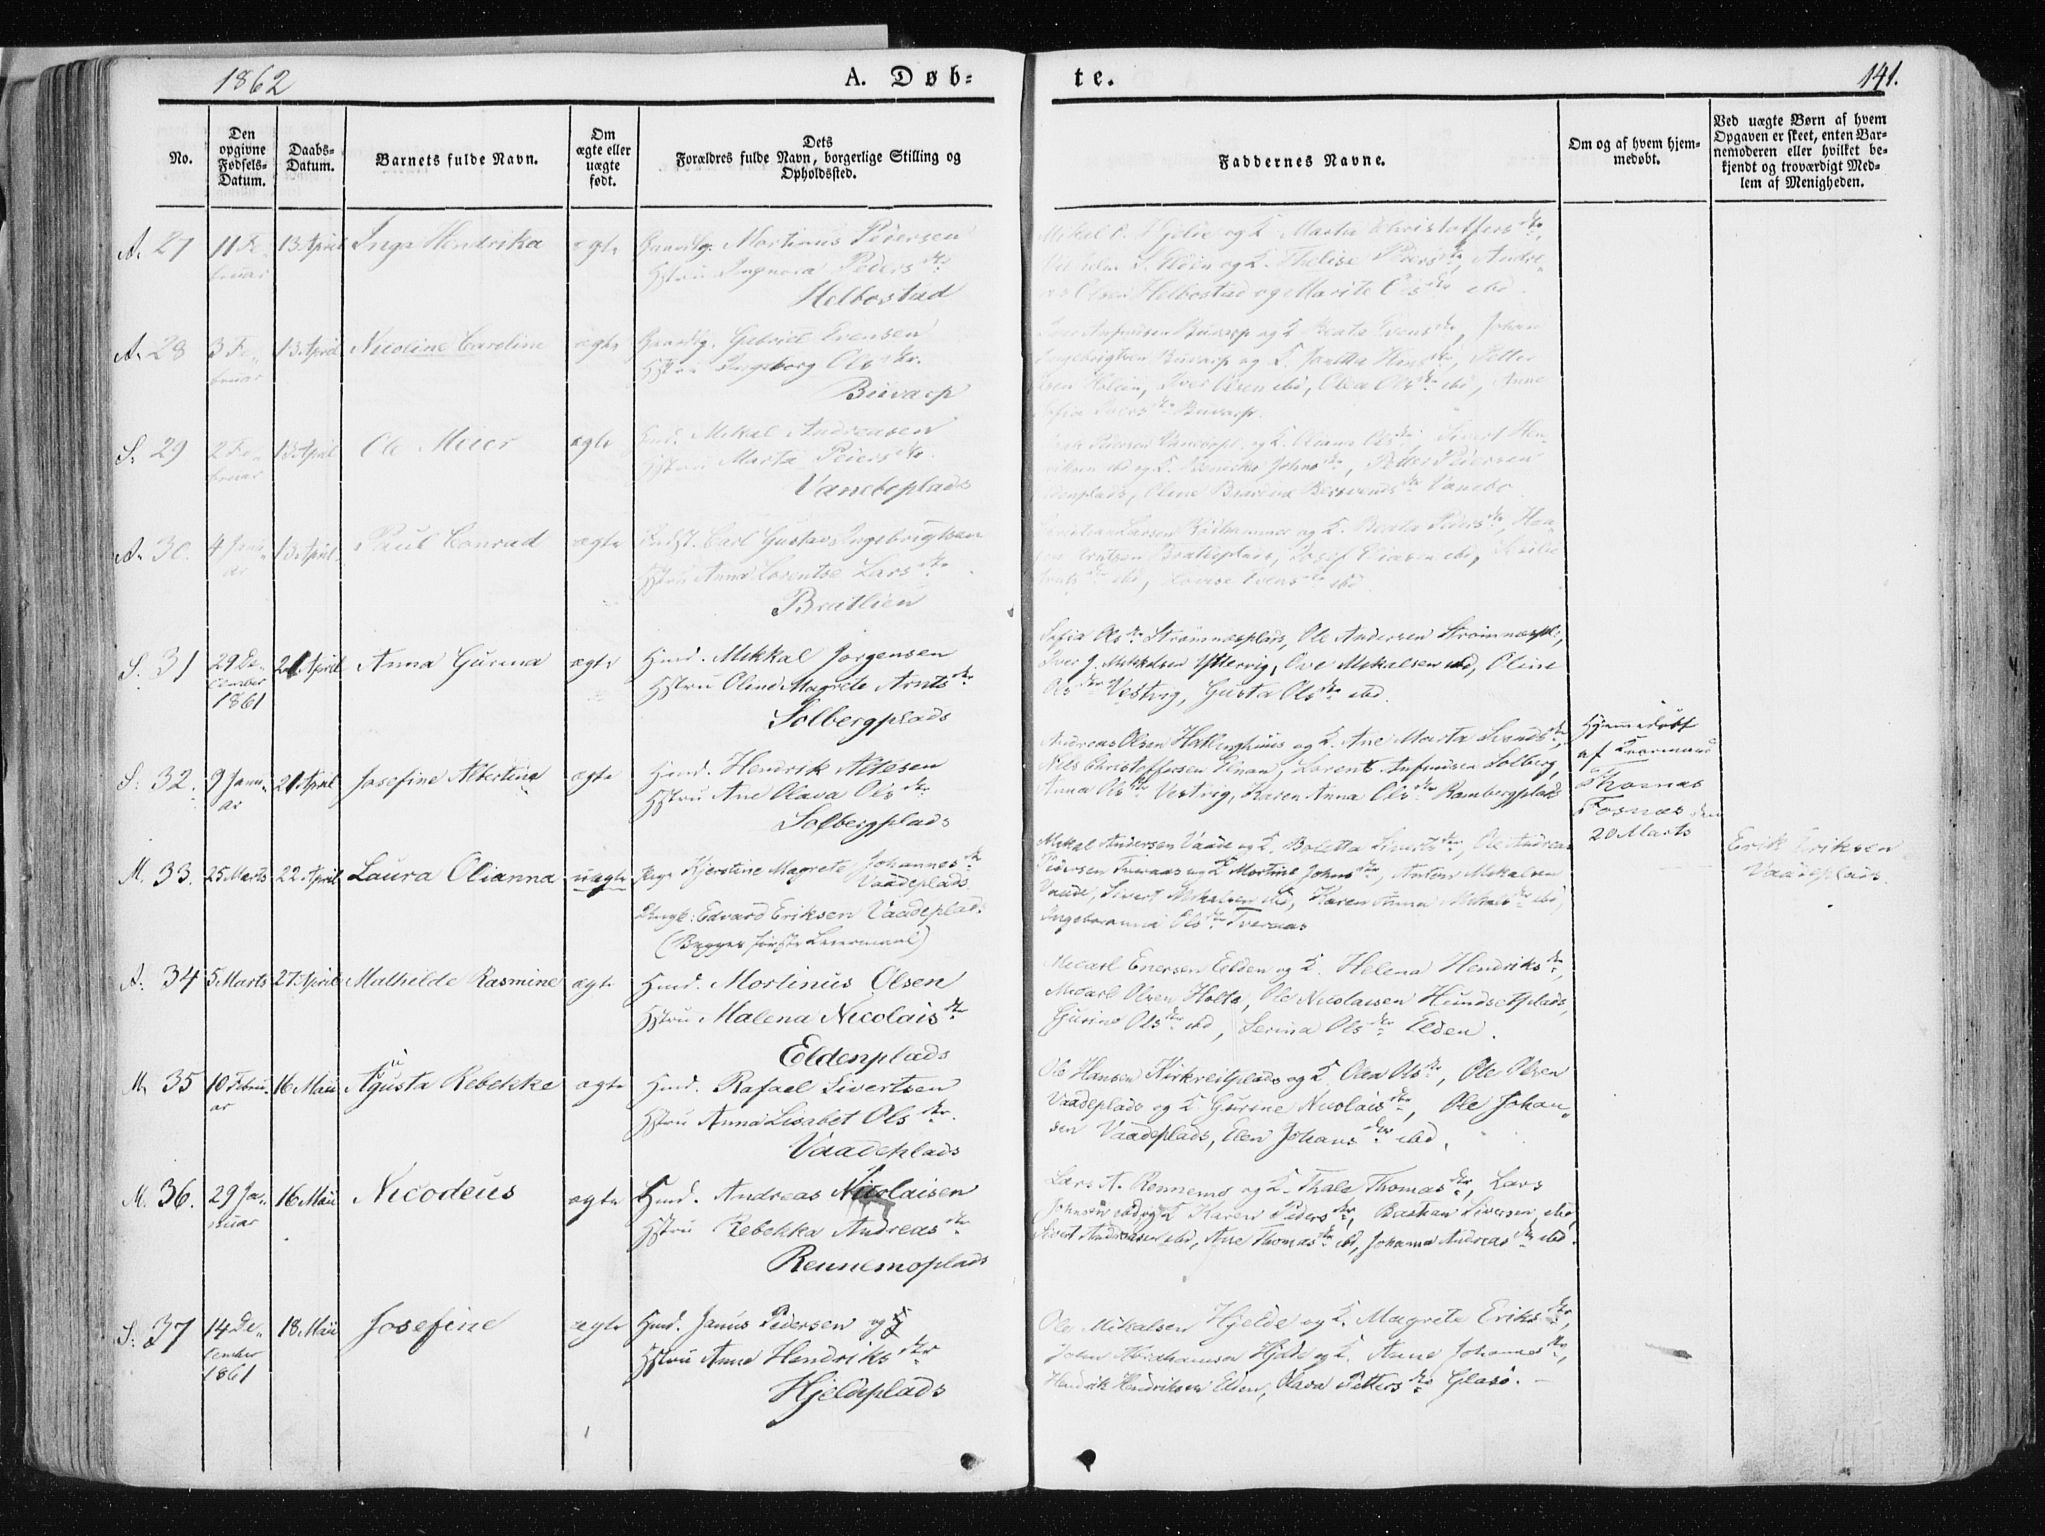 1862
A. Døb-
te.
141.
No.
Den
opgivne
Fødsels-
Datum.
Daabs-
Datum.
Barnets fulde Navn.
Om
ægte eller
uægte
født.
Dets
Forældres fulde Navn, borgerlige Stilling og
Opholdssted.
Faddernes Navne.
Om og af hvem hjem-
medøbt.
Ved uægte Børn af hvem
Opgaven er skeet, enten Bar-
nemoderen eller hvilket be-
kjendt og troværdigt Med-
lem af Menigheden.
A. 27
11 Fe-
bruar
13 April
Inga Hendrika
ægte
Martinus Pedersen
Hstru Ingnora Pedersdtr
Helbostad
Mikal P. Hjelde og K. Marta Christoffersdtr,
Elden og K. Pedersdtr, Andre-
as Olsen Helbostad og Marite Olsdtr ibd.
A. 28
3 Fe-
bruar
13 April
Nicoline Caroline
ægte
Gabriel Evensen
Hstru Ingeborg Olsdtr.
Buvarp
Iver Anfindsen Buvarp og K. Beata Evensdtr, Johan
Ingebrigtsen Buvarp og K. Hansdtr, Petter
Iver Olsen ibd, Olea Olsdtr ibd, Anne
Sofia Iversdtr Buvarp.
S. 29
2 Fe-
bruar
13 April
Ole Meier
ægte
Hmd. Mikal Andreasen
Hstru Marta Pedersdtr.
Vaneboplads
Pedersen og K. Oliana Olsdtr, Sivert Hen-
riksen ibd og K. Johnsdtr, Petter Pedersen
Eldenplads, Oline Vanebo
A. 30.
4 Janu-
ar
13 April
Paul Conrad
ægte
Indst. Carl Gustav Ingebrigtsen
Hstru Anna Lorentse Larsdtr.
Bratlien
Larsen og K. Beata Pedersdtr,
Bratlieplads, Josef Eliasen ibd,
ibd, Lovise Evensdtr ibd
S. 31
29 De-
cember
1861
21 April
Anna Gurina
ægte
Hmd. Mikkal Jørgensen
Hstru Oline Magrete Arntsdtr
Solbergplads
Sofia Olsdtr Strømnæsplads, Ole Andersen Strømnæspl,
Iver J. Mikkelsen Yttervig, Ove Mikalsen ibd, Oline
Olsdtr Vestvig, Gusta Olsdtr ibd.
S. 32.
9 Janu-
ar
21 April
Josefine Albertine
ægte
Hmd. Hendrik Altesen
Hstru Ane Olava Olsdtr
Solbergplads
Andreas Olsen Hatlinghuus og K. Ane Marta Sivertsdtr,
Nils Christoffersen Elnan, Lorents Anfindsen Solberg,
Anna Olsdtr Vestvig, Karen Anna Olsdtr Rambergplads
Hjemmedøbt
af Kvarmand
Thomas
Fosnæs den
20 Marts
M. 33.
25 Marts
22 April
Laura Olianna
uægte
Pige Kjerstine Magrete Johannesdtr
Vaadeplads
Ungk: Edvard Eriksen Vaadeplads
(Begges første Leiermaal)
Mikal Andersen Vaade og K. Boletta Sivertsdtr, Ole Andreas
Pedersen Tveraas og K Mortine Johnsdtr, Anton Mikalsen
Vaade, Sivert Mikalsen ibd, Karen Anna Mikalsdtr ibd,
Ingeboranna Olsdtr Tveraas
Erik Eriksen
Vaadeplads.
A: 34
5 Marts
27 April
Mathilde Rasmine
ægte
Hmd. Mortinus Olsen
Hstru Malena Nicolaisdtr
Eldenplads
Micael Enersen Elden og K. Helena Hendriksdtr,
Micael Olsen Holte, Ole Nicolaisen Hundsetplads,
Gurine Olsdtr ibd, Serina Olsdtr Elden.
M. 35
10 Febru-
ar
16 Mai
Agusta Rebekke
ægte
Hmd. Rafael Sivertsen
Hstru Anna Lisabet Olsdtr.
Vaadeplads
Ole Hansen Kirkreitplads og K. Olea Olsdtr, Ole Olsen
Vaadeplads og K. Gurine Nicolaisdtr, Ole Johan-
sen Vaadeplads, Elen Johansdtr ibd.
M. 36.
29 Ja-
nuar
16 Mai
Nicodeus
ægte
Hmd. Andreas Nicolaisen
Hstru Rebekka Andreasdtr
Rennemoplads
Lars A. Rennemo og K. Thale Thomasdtr, Lars
Johnsen ibd og K Karen Pedersdtr, Bastian Siversen ibd,
Sivert Andreasen ibd, Ane Thomasdtr ibd, Johanna Andreasdtr ibd.
S: 37
14 De-
cember
1861
18 Mai
Josefine
ægte
Hmd. Janus Pedersen og
Hstru Anne Hendriksdtr
Hjeldeplads
Ole Mikalsen Hjelde og K. Magrete Eriksdtr,
John Abrahamsen Hjelde og K. Anne Johannesdtr,
Hendrik Hendriksen Elden, Olava Pettersdtr Glasø.